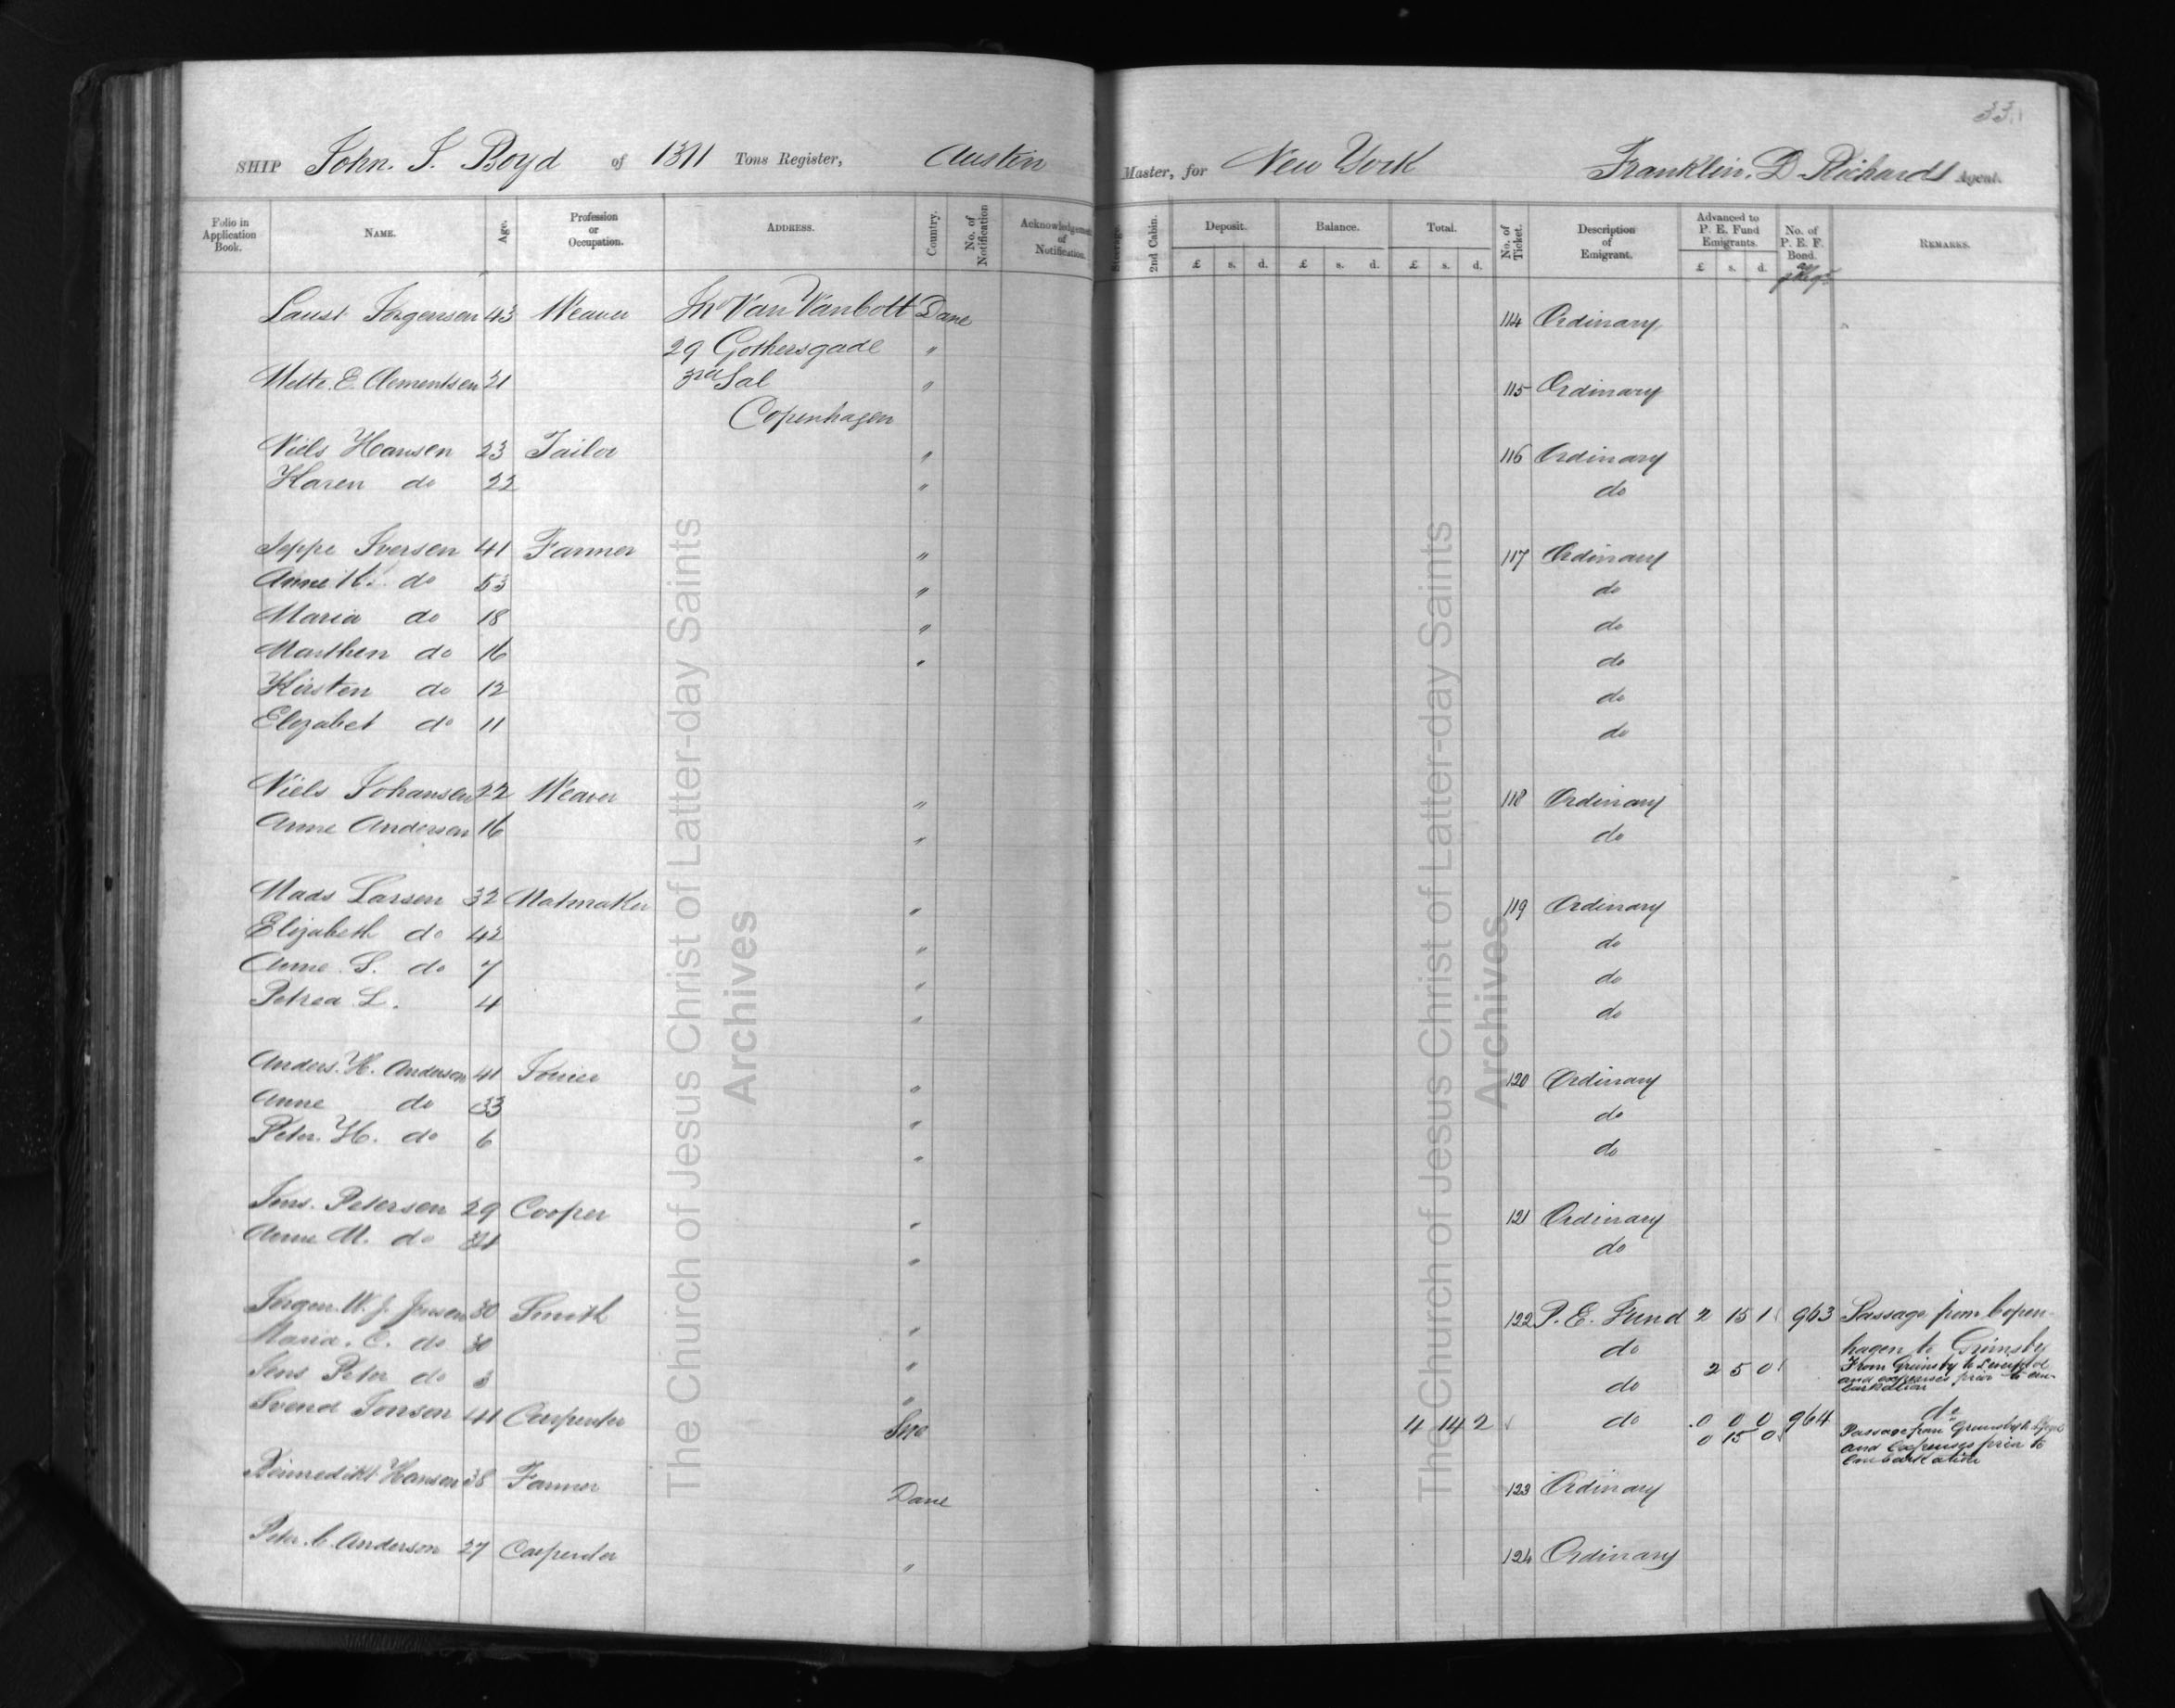 33
SHIP John. J. Boyd of 1311 Tons Register, Austin Master, for New York Franklin. D. Richards Agent.
Folio in Application Book. NAME. Age. Profession or Occupation. ADDRESS. Country. No. of Notification Acknowledgement of Notification. Steerage. 2nd Cabin. Deposit. Balance. Total. No. of Ticket. Description of Emigrant. Advanced to P. E. Fund Emigrants. No. of P. E. F. Bond. REMARKS.
£ s. d. £ s. d. £ s. d. £ s. d.
Laust Jorgensen 43 Weaver Van Vanbott Dane 114 Ordinary
29 Gothersgade "
Mette. E. Clementsen 21 3rd Sal " 115 Ordinary
Copenhagen
Niels Hansen 23 Tailor " 116 Ordinary
Karen do 22 " do
Jeppe Iversen 41 Farmer " 117 Ordinary
Anne K. do 53 " do
Maria do 18 " do
Marthen do 16 " do
Kirsten do 12 do
Elezabet do 11 do
Niels Johansen 22 Weaver " 118 Ordinary
Anne Andersen 16 " do
Mads Larsen 32 Matmaker " 119 Ordinary
Elizabeth do 42 " do
Anne. S. do 7 " do
Petrea L. 4 " do
Anders. H. Andersen 41 Joiner " 120 Ordinary
Anne do 33 " do
Peter. H. do 6 " do
Jens. Petersen 29 Cooper " 121 Ordinary
Anne M. do 31 " do
Jorgen. W. J. Jensen 30 Smith " 122 P. E. Fund 2 15 1 963 Passage from Copen-
Maria. C. do 30 " do hagen to Grimsby
Jens Peter do 3 " do 2 5 0 From Grimsby to Liverpool and expenses prior to em-barkation
Svend Jonson 41 Carpenter Swe 4 14 2 do 0 0 0 964 do
0 15 0 Passage from Grimsby to L.pool and expenses prior to Embarkation
Bennedikt Hansen 38 Farmer Dane 123 Ordinary
Peter. C. Anderson 27 Carpenter " 124 Ordinary
The Church of Jesus Christ of Latter-day Saints
Archives
The Church of Jesus Christ of Latter-day Saints
Archives